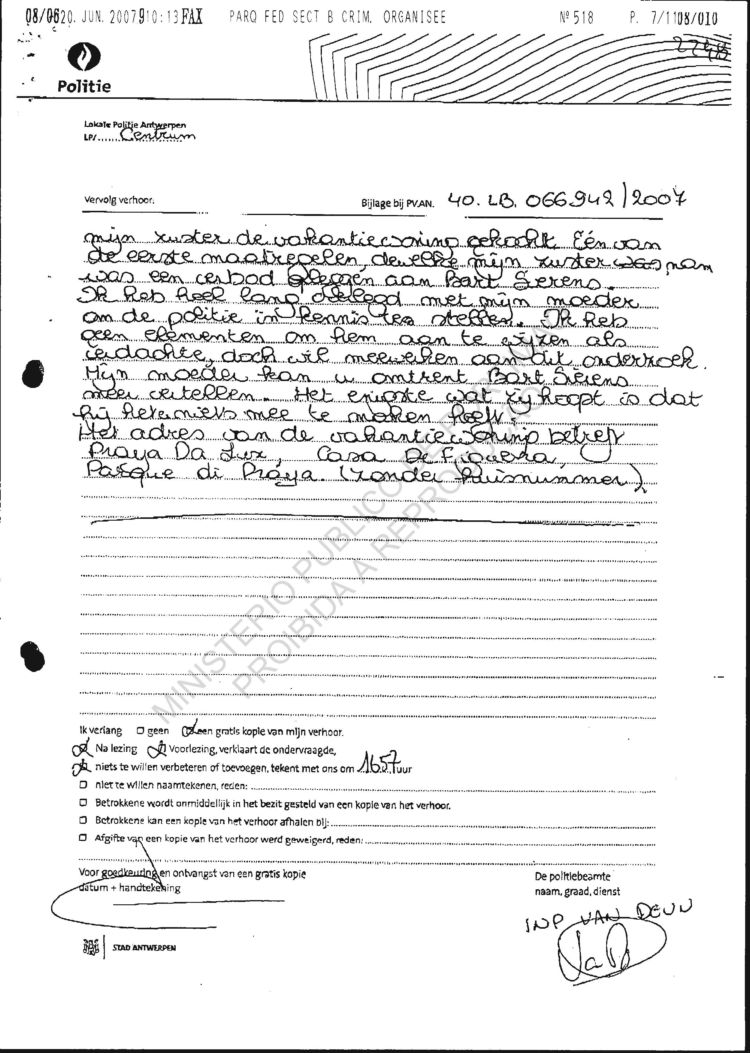 08/06 20. JUN. 2007 9 10:13 FAX PARQ FED SECT B CRIM. ORGANISEE Nº 518 P. 7/11 08/010
Politie
Lokale Politie Antwerpen
LP/...... Centrum
Vervolg verhoor. Bijlage bij PV.AN. 40. LB. 066942/2007
mijn zuster de vakantiewoning gekocht. Eén van
de eerste maatregelen, dewelke mijn zuster nam
was een verbod opleggen aan Bart Serens.
Ik heb heel lang overlegd met mijn moeder
om de politie in kennis te stellen. Ik heb
geen elementen om hem aan te wijzen als
verdachte, doch wil meewerken aan dit onderzoek.
Mijn moeder kan u omtrent Bart Serens
meer vertellen. Het enigste wat zij hoopt is dat
hij hier niets mee te maken heeft.
Het adres van de vakantiewoning betreft
Praya Da Luz, Casa Di Figuera,
Parque di Praya (zonder huisnummer)
MINISTERIO PUBLICO
PROIBIDA A REPRODUÇÃO
Ik verlang □ geen ☒ een gratis kopie van mijn verhoor.
☒ Na lezing ☒ Voorlezing, verklaart de ondervraagde,
☒ niets te willen verbeteren of toevoegen, tekent met ons om 1657 uur
□ niet te willen naamtekenen, reden:
□ Betrokkene wordt onmiddellijk in het bezit gesteld van een kopie van het verhoor.
□ Betrokkene kan een kopie van het verhoor afhalen bij:
□ Afgifte van een kopie van het verhoor werd geweigerd, reden:
Voor goedkeuring en ontvangst van een gratis kopie
datum + handtekening
De politiebeamte
naam, graad, dienst
INP VAN DEUN
STAD ANTWERPEN